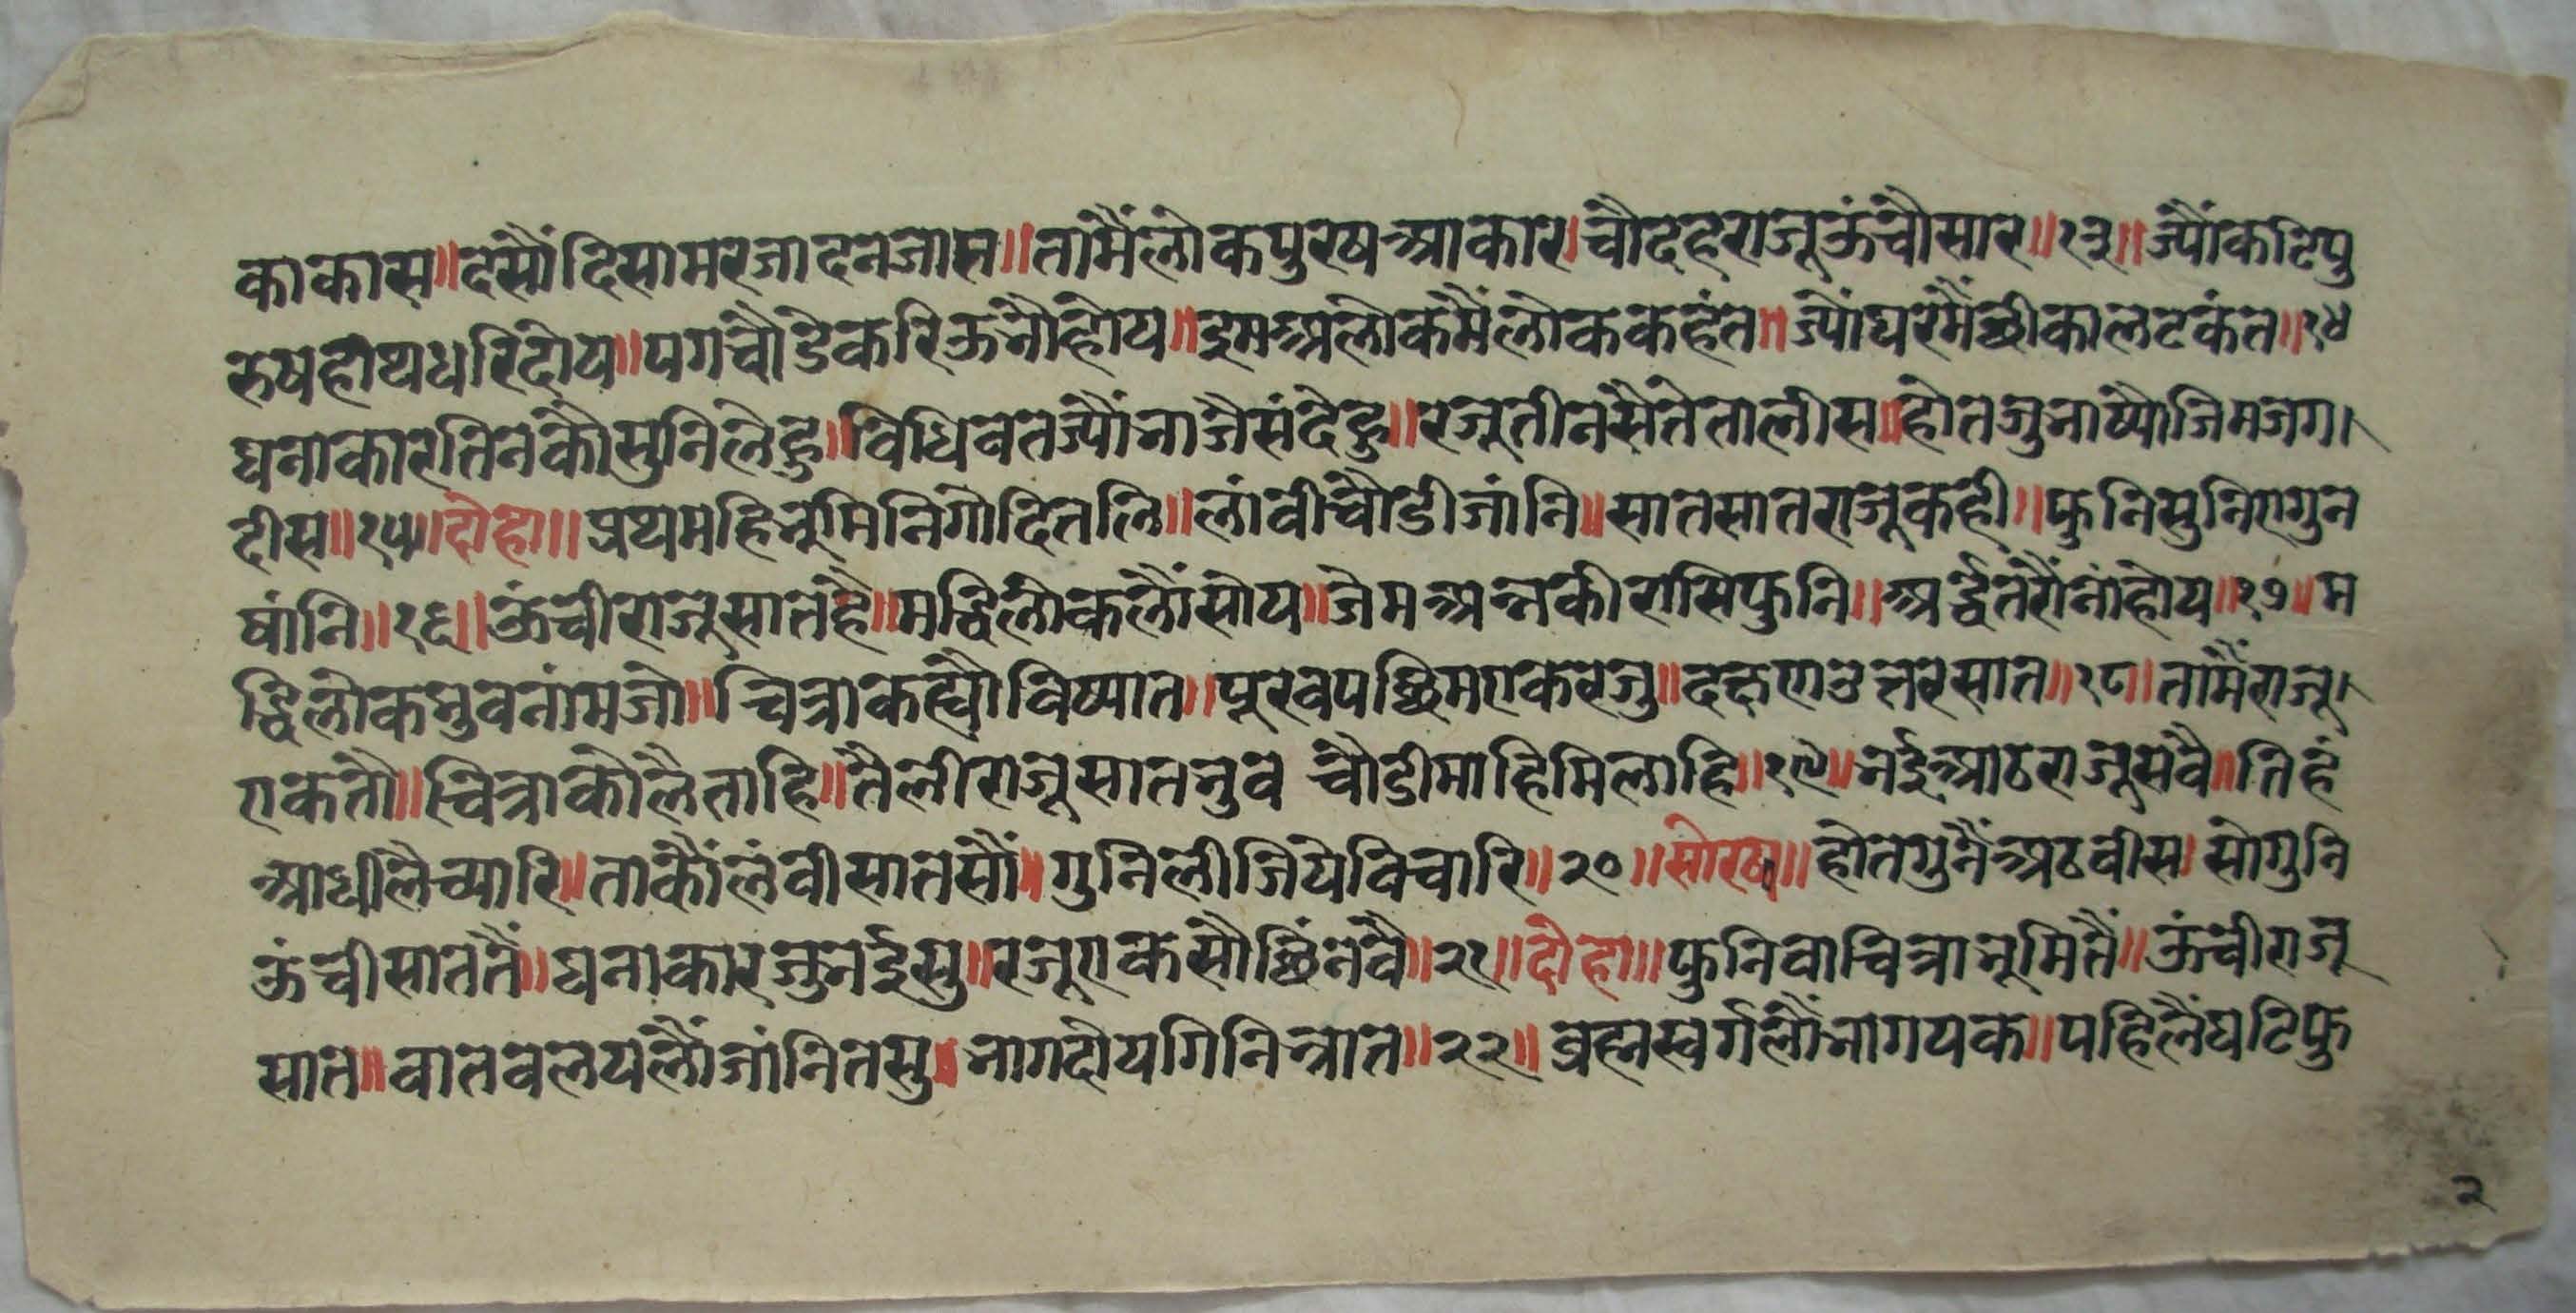 काकास॥दसौंदिसामरजादनजास॥तामैंलोकपुरषआकार।चौदहराजूऊंचौसार॥१३॥ज्यौंकटिपु
रुषहाथधरिदोय॥पगचौडेकरिऊभौहोय॥इमअलोकमैंलोककहंत॥ज्यौंघरमैंछीकालटकंत॥१४
घनाकारतिनकौसुनिलेहु॥विधिवतज्यौंभाजैसंदेहु॥रजूतीनसैतेतालीस॥होतजुभाष्यौजिमजग।
दीस॥१५॥दोहा॥प्रथमहिभूमिनिगोदितलि॥लांबीचौडीजांनि॥सातसातराजूकही॥फुनिसुनिएगुन
षांनि॥१६॥ऊंचीराजूसातहै॥मद्धिलोकलौंसोय॥जेमअन्नकीरासिफुनि॥अर्द्धतरौंनांहोय॥१७॥म
द्धिलोकभुवनांमजो॥चित्राकह्यौविष्यात॥पूरवपछिमएकरजु॥दक्षणउत्तरसात॥१८॥तामैंराजू।
एकतौ॥चित्राकौलैताहि॥तैलीराजूसातभुव चौडीमाहिमिलाहि॥१९॥भईआठराजूसवै॥तिहं
आधीलैच्यारि॥ताकौंलंवीसातसौं॥गुनिलीजियेविचारि॥२०॥सोरठा॥होतगुनैंअठवीस।सोगुनि
ऊंचीसाततैं॥घनाकारजुभईसु॥रजूएकसौछिंनवै॥२१॥दोहा॥फुनिवाचित्राभूमितैं॥ऊंचीराजू
सात॥वातवलयलौंजांनितसु॥भागदोयगिनिभ्रात॥२२॥ब्रह्मस्वर्गलौंभागयक॥पहिलैंघटिफु
२